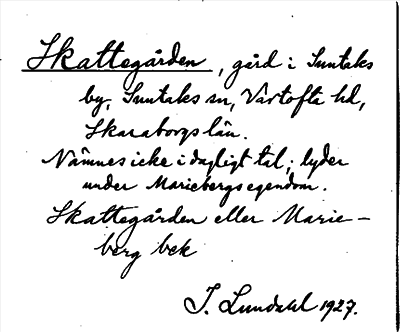 Skattegården, gård i Suntaks
by, Suntaks sn, Vartofta hd,
Skaraborgs län.
Nämnes icke i dagligt tal; lyder
under Mariebergs egendom.
Skattegården eller Marie-
berg bek
J. Lundahl 1927.